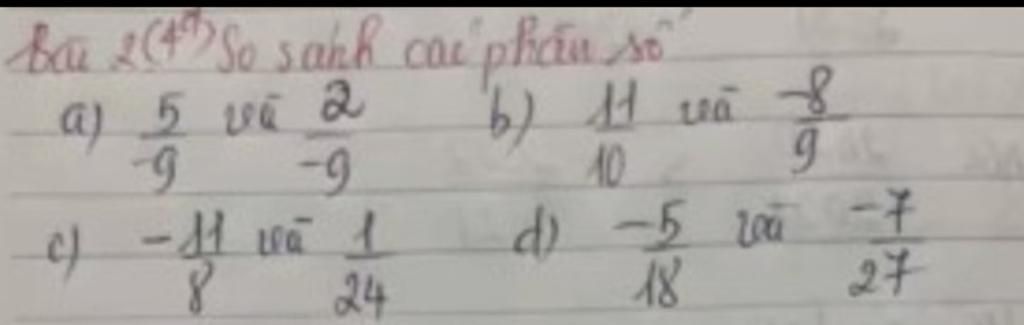 Bài 2(4đ) So sánh các phân số
a) 5/-9 và 2/-9 b) 11/10 và -8/9
c) -11/8 và 1/24 d) -5/18 và -7/27